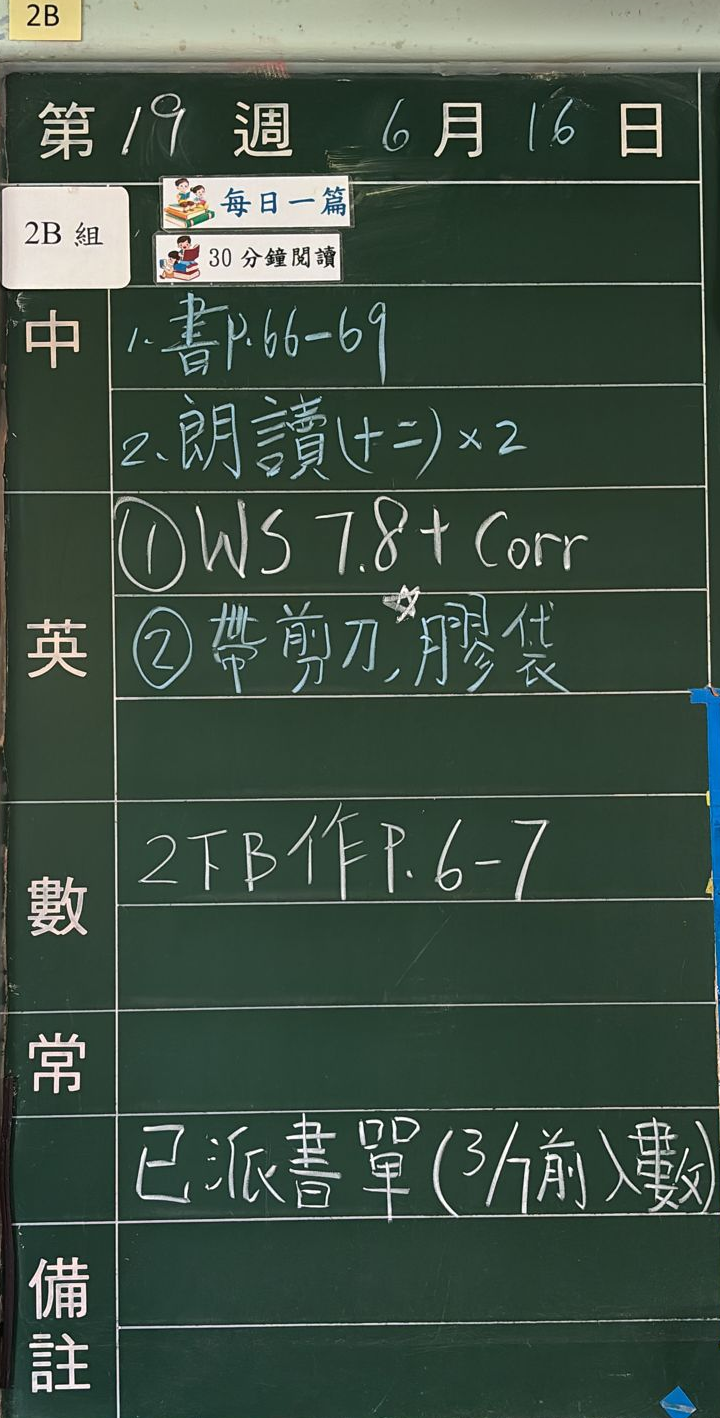 2B
第19週 6月16日
2B 組
每日一篇
30 分鐘閱讀
中
1. 書P.66-69
2. 朗讀(十二)×2
英
① WS 7.8+ Corr
② 帶剪刀、膠袋
數
2下B作P.6-7
常
已派書單(3/7前入數)
備註